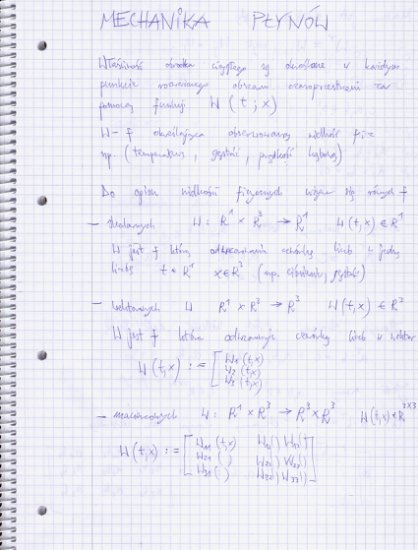 MECHANIKA PŁYNÓW
Właściwość ośrodka ciągłego są określone w każdym
punkcie rozważanego obszaru czasoprzestrzeni za
pomocą funkcji W(t,x)
W - f określająca obserwowaną wielkość fiz.
np. (temperatura, gęstość, prędkość
Do opisu wielkości fizycznych używa się różnych f
- skalarnych W: R¹ × R³ → R¹ W(t,x) ∈ R¹
W jest f która odwzorowuje czwórkę liczb w jedną
liczbę t ∈ R¹ x ∈ R³ (np. ciśnienie, gęstość)
- wektorowych W R¹ × R³ → R³ W(t,x) ∈ R³
W jest f która odwzorowuje czwórkę liczb w wektor
W(t,x) := [ W₁(t,x)
W₂(t,x)
W₃(t,x) ]
- macierzowych W: R¹ × R³ → R³ × R³ W(t,x) ∈ R³ˣ³
W(t,x) := [ W₁₁(t,x) W₁₂() W₁₃()
W₂₁( ) W₂₂() W₂₃()
W₃₁( ) W₃₂() W₃₃() ]